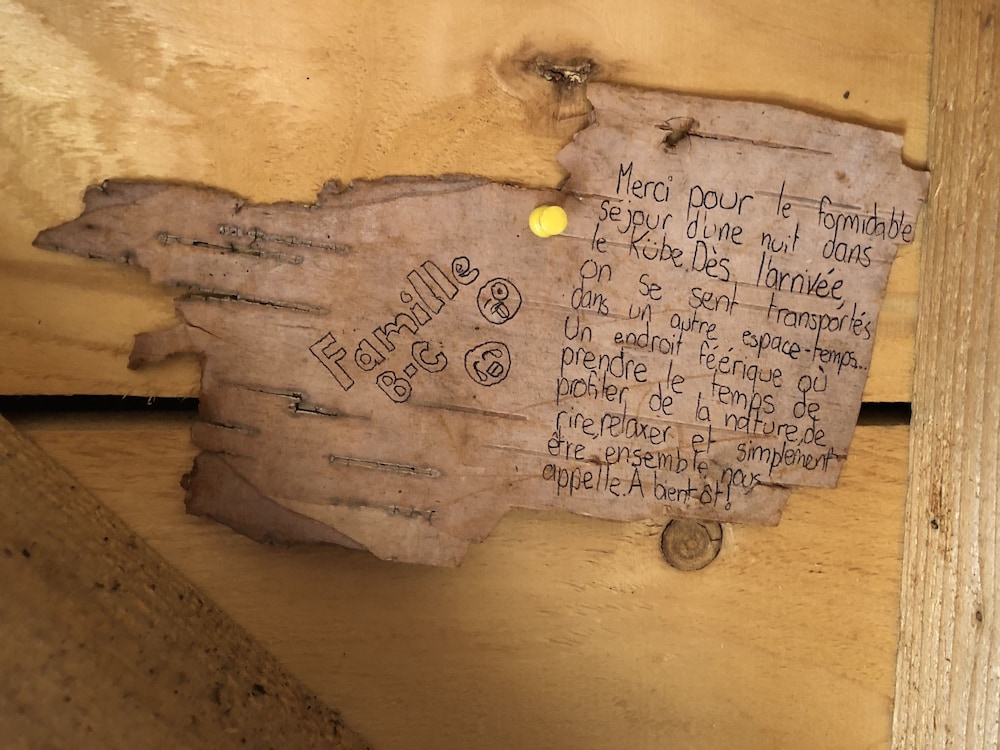 Merci pour le formidable
séjour d'une nuit dans
le Kübe. Dès l'arrivée,
on se sent transportés
dans un autre espace-temps...
Un endroit féérique où
prendre le temps de
profiter de la nature, de
rire, relaxer et simplement
être ensemble nous
appelle. À bientôt!
Famille
B-C